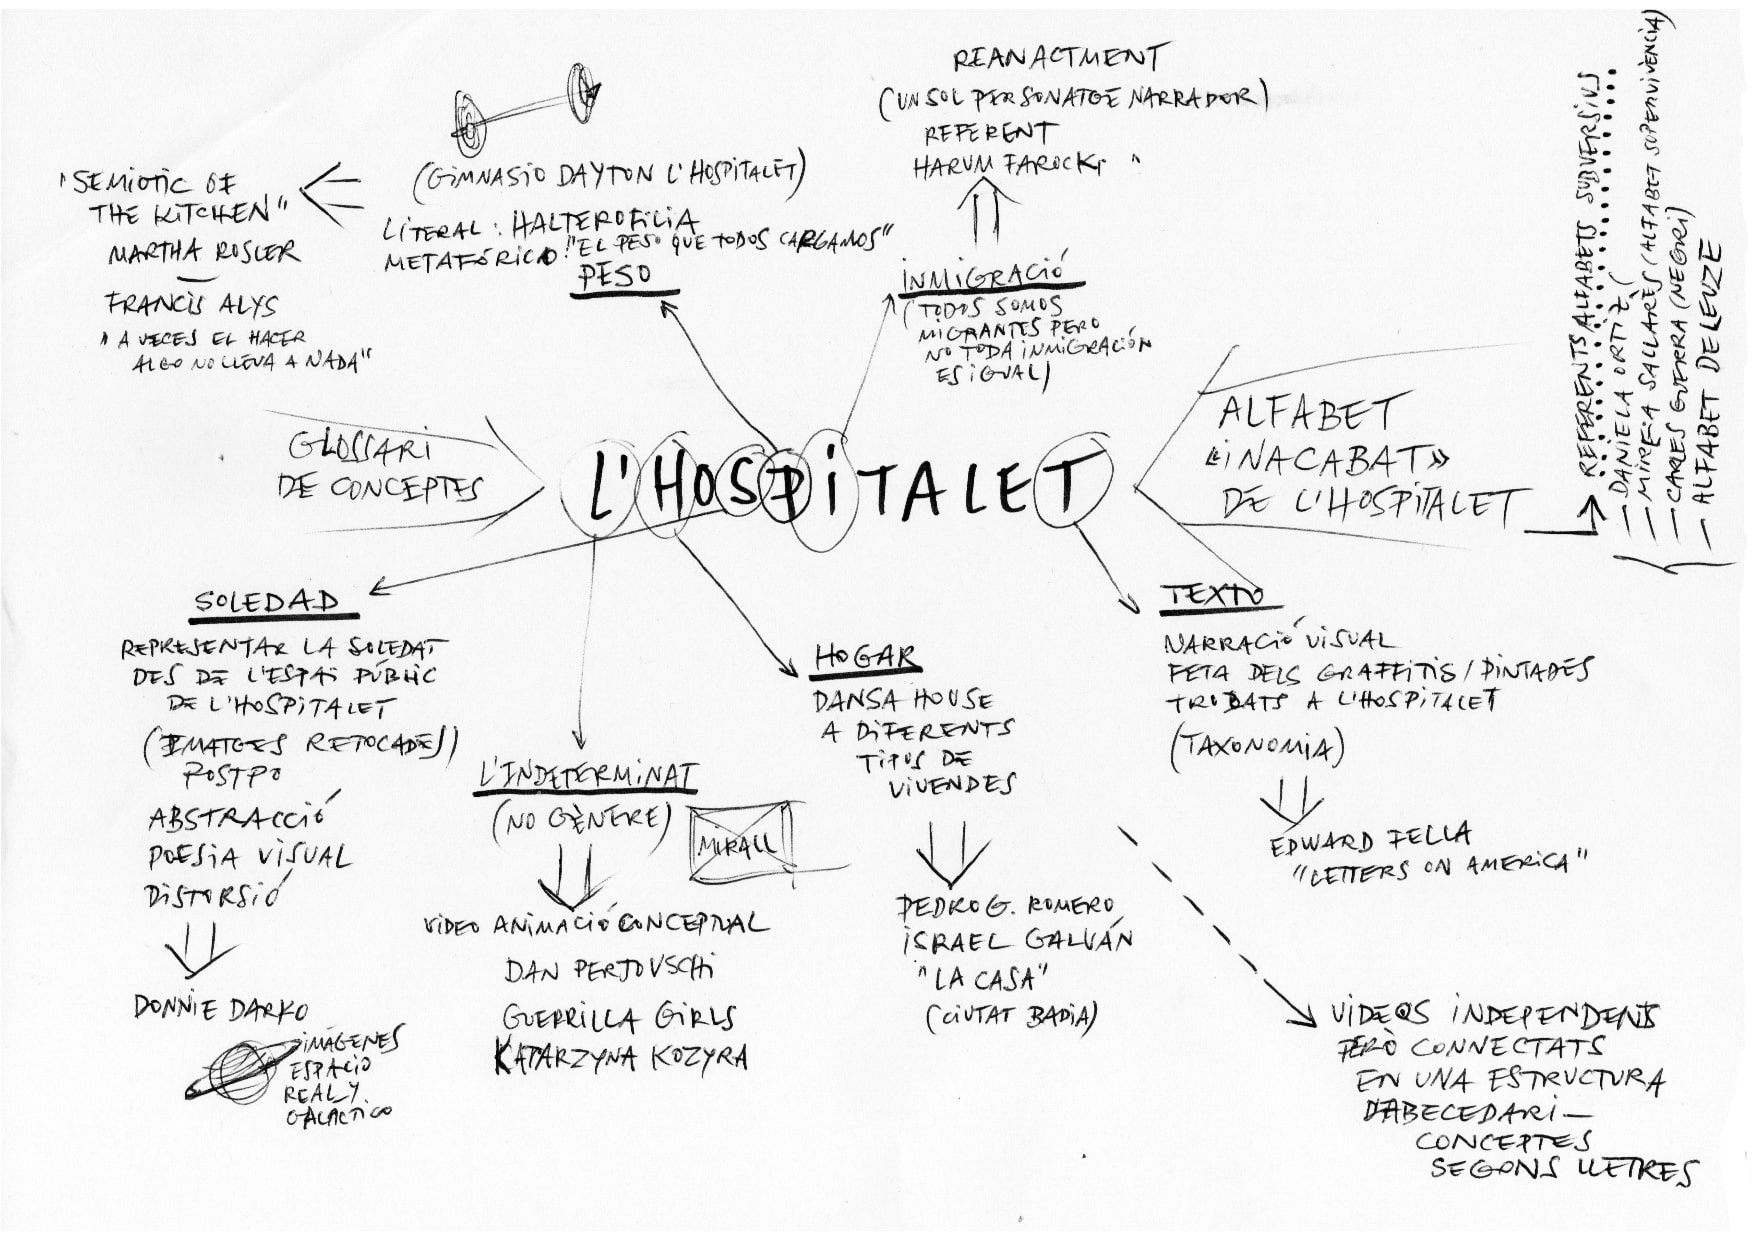 REANACTMENT
(UN SOL PERSONATGE NARRADOR)
REFERENT
HARUM FAROCKI "
(GIMNASIO DAYTON L'HOSPITALET)
LITERAL: HALTEROFILIA
METAFÓRICO: "EL PESO QUE TODOS CARGAMOS"
PESO
"SEMIOTIC OF
THE KITCHEN"
MARTHA ROSLER
—
FRANCIS ALYS
"A VECES EL HACER
ALGO NO LLEVA A NADA"
INMIGRACIÓ
(TODOS SOMOS
MIGRANTES PERO
NO TODA INMIGRACIÓN
ES IGUAL)
GLOSSARI
DE CONCEPTES
L'HOSPITALET
ALFABET
«INACABAT»
DE L'HOSPITALET
REFERENTS ALFABETS SUBVERSIUS
— DANIELA ORTIZ (
— MIREIA SALLARÈS (ALFABET SUPERVIVÈNCIA)
— CARLES GUERRA (NEGRI)
— ALFABET DELEUZE
SOLEDAD
REPRESENTAR LA SOLEDAT
DES DE L'ESPAI PÚBLIC
DE L'HOSPITALET
(IMATGES RETOCADES)
POSTPO
ABSTRACCIÓ
POESIA VISUAL
DISTORSIÓ
DONNIE DARKO
IMÁGENES
ESPACIO
REAL Y
GALACTICO
L'INDETERMINAT
(NO GÈNERE)
MIRALL
VIDEO ANIMACIÓ CONCEPTUAL
DAN PERJOVSCHI
GUERRILLA GIRLS
KATARZYNA KOZYRA
HOGAR
DANSA HOUSE
A DIFERENTS
TIPUS DE
VIVENDES
PEDRO G. ROMERO
ISRAEL GALVÁN
"LA CASA"
(CIUTAT BADIA)
TEXTO
NARRACIÓ VISUAL
FETA DELS GRAFFITIS/PINTADES
TROBATS A L'HOSPITALET
(TAXONOMIA)
EDWARD FELLA
"LETTERS ON AMERICA"
VIDEOS INDEPENDENTS
PERÒ CONNECTATS
EN UNA ESTRUCTURA
D'ABECEDARI —
CONCEPTES
SEGONS LLETRES